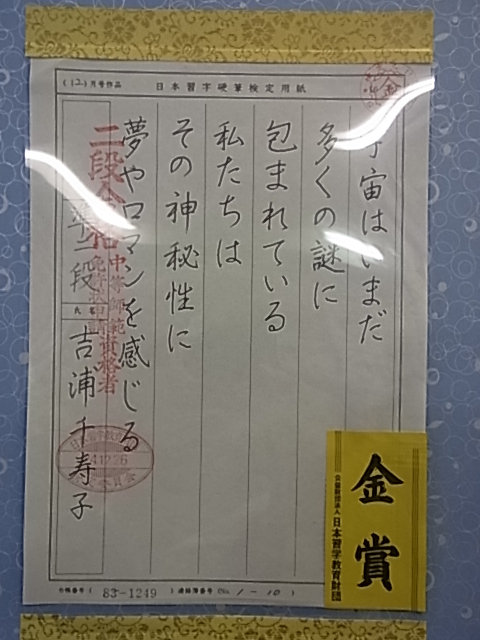 (12)月号作品
日本習字硬筆検定用紙
宇宙はいまだ
多くの謎に
包まれている
私たちは
その神秘性に
夢やロマンを感じる
二段合格
中等師範資格者
準二段
氏名
吉浦千寿子
(83-1249)
(No. 1-10)
金賞
公益財団法人 日本習字教育財団